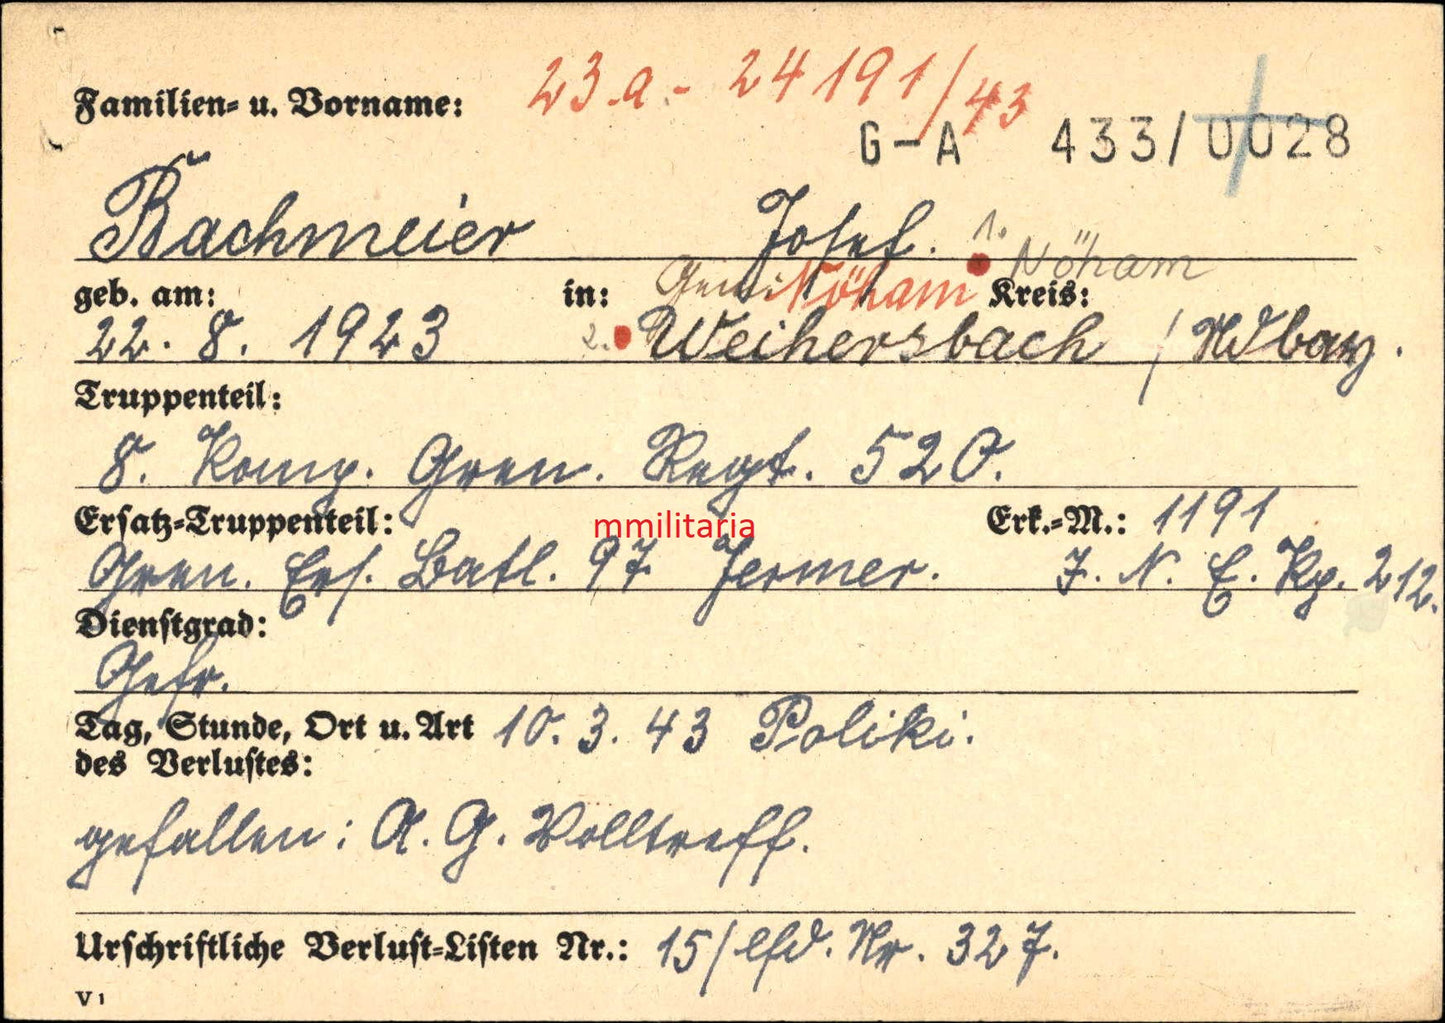 Familien- u. Vorname: 23.a. - 24191/43
G-A 433/0028
Bachmeier Josef. 1. Nöham
geb. am: in: Gem. Nöham Kreis:
22. 8. 1923 2. Weihersbach / Ndbay.
Truppenteil:
8. Komp. Gren. Regt. 520.
Ersatz-Truppenteil: mmilitaria Erk.-M.: 1191
Gren. Ers. Batl. 97 J. N. E. Kp. 212.
Dienstgrad:
Gefr.
Tag, Stunde, Ort u. Art 10. 3. 43 Poliki.
des Verlustes:
gefallen: A. G. Volltreff.
Urschriftliche Verlust-Listen Nr.: 15/lfd. Nr. 327.
V 1